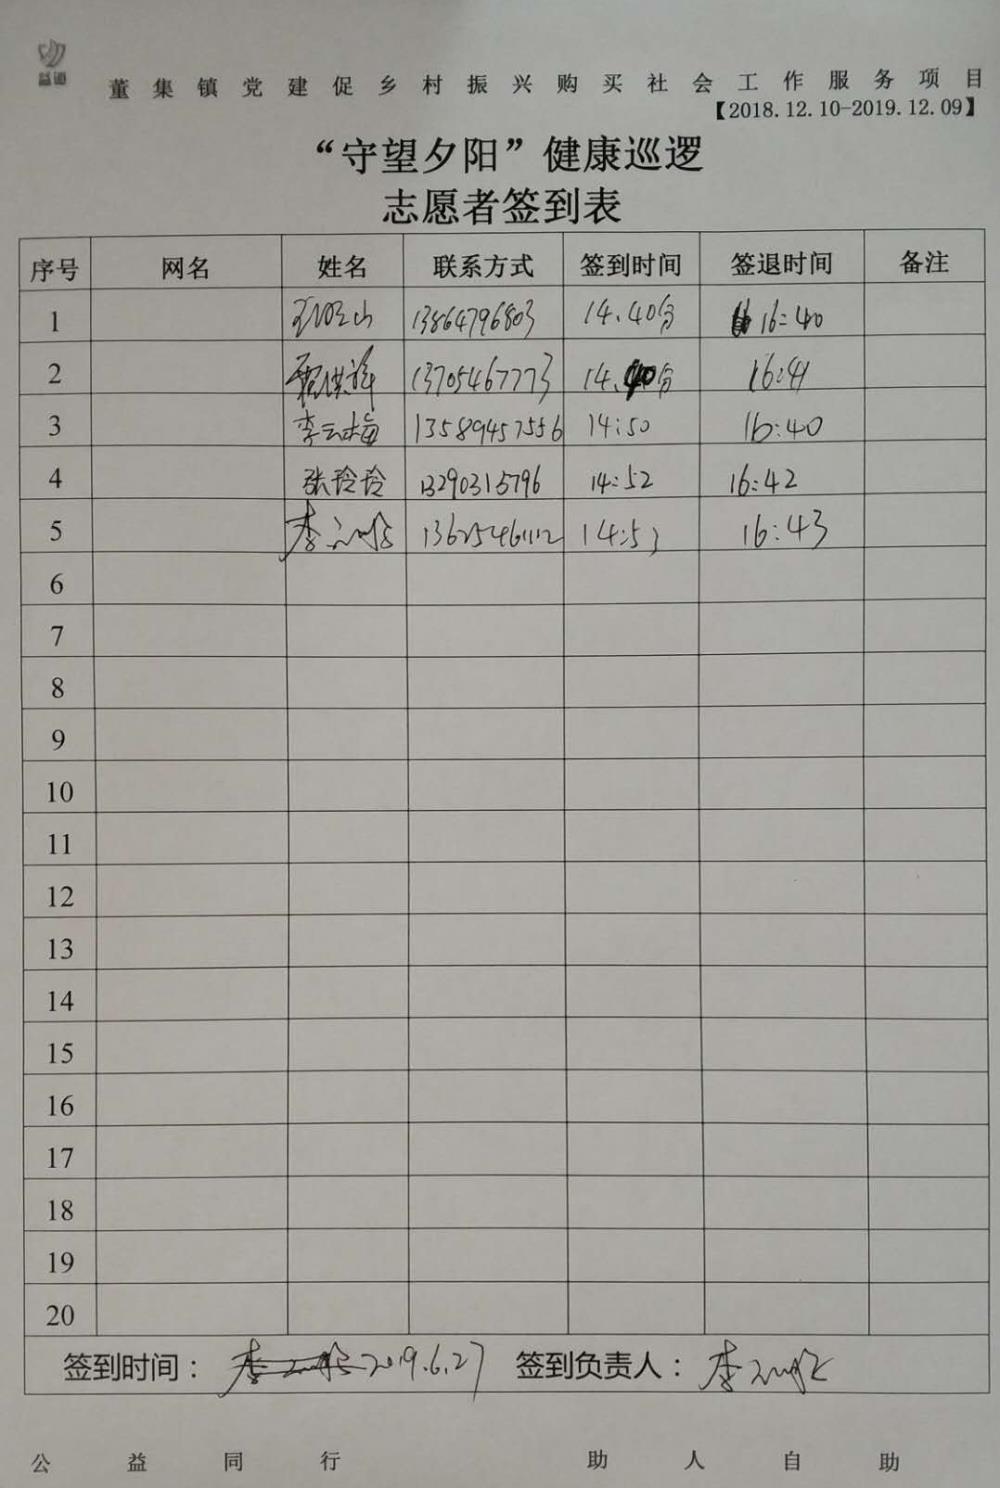 益迪
董集镇党建促乡村振兴购买社会工作服务项目
【2018.12.10-2019.12.09】
“守望夕阳”健康巡逻
志愿者签到表
序号 网名 姓名 联系方式 签到时间 签退时间 备注
1 13864796803 14.40分 16:40
2 13705467773 14.40分 16:41
3 李云梅 13589457556 14:50 16:40
4 张玲玲 13290315796 14:52 16:42
5 李 13625461112 14:53 16:43
6
7
8
9
10
11
12
13
14
15
16
17
18
19
20
签到时间： 2019.6.27 签到负责人：李
公益同行 助人自助